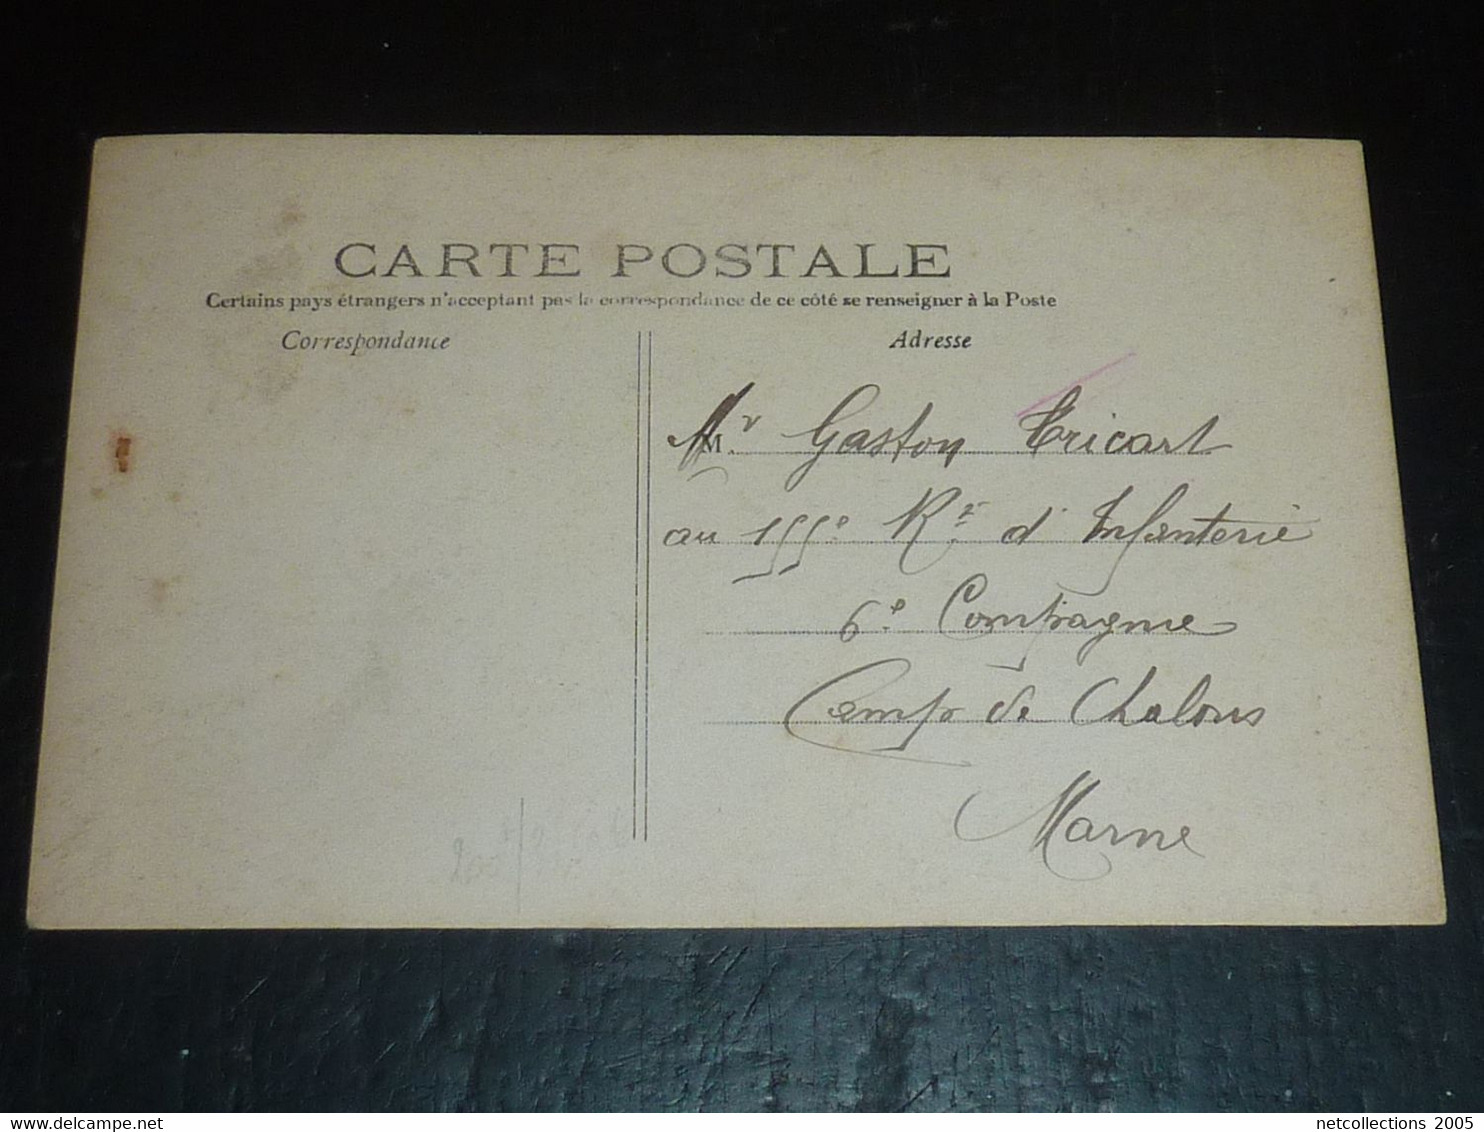 CARTE POSTALE
Certains pays étrangers n'acceptant pas la correspondance de ce côté se renseigner à la Poste
Correspondance
Adresse
Mr Gaston Tricart
au 155e Rt d'Infanterie
6e Compagnie
Camp de Chalons
Marne
netcollections 2005